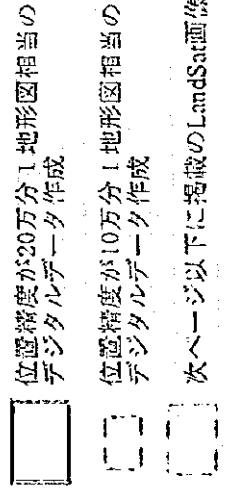 位置精度が20万分1地形図相当の
デジタルデータ作成
位置精度が10万分1地形図相当の
デジタルデータ作成
次ページ以下に掲載のLandSat画像